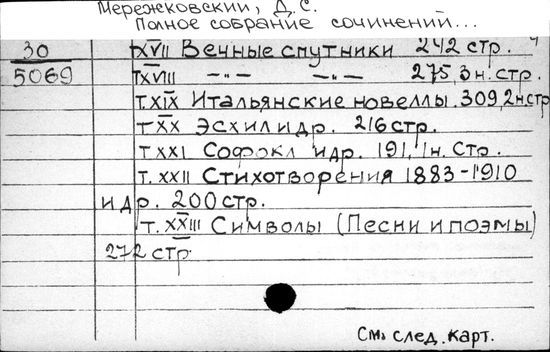 Мережковский, Д. С.
Полное собрание сочинений...
30 т XVII Вечные спутники 242 стр. ч
5069 т XVIII —"— —"— 275, 3 н. стр.
т. XIX Итальянские новеллы. 309, 2 н. стр
т XX Эсхил и др. 216 стр.
т XXI Софокл и др. 191, 1 н. стр.
т. XXII Стихотворения 1883-1910
и др. 200 стр.
т. XXIII Символы (Песни и поэмы)
272 стр.
См. след. карт.